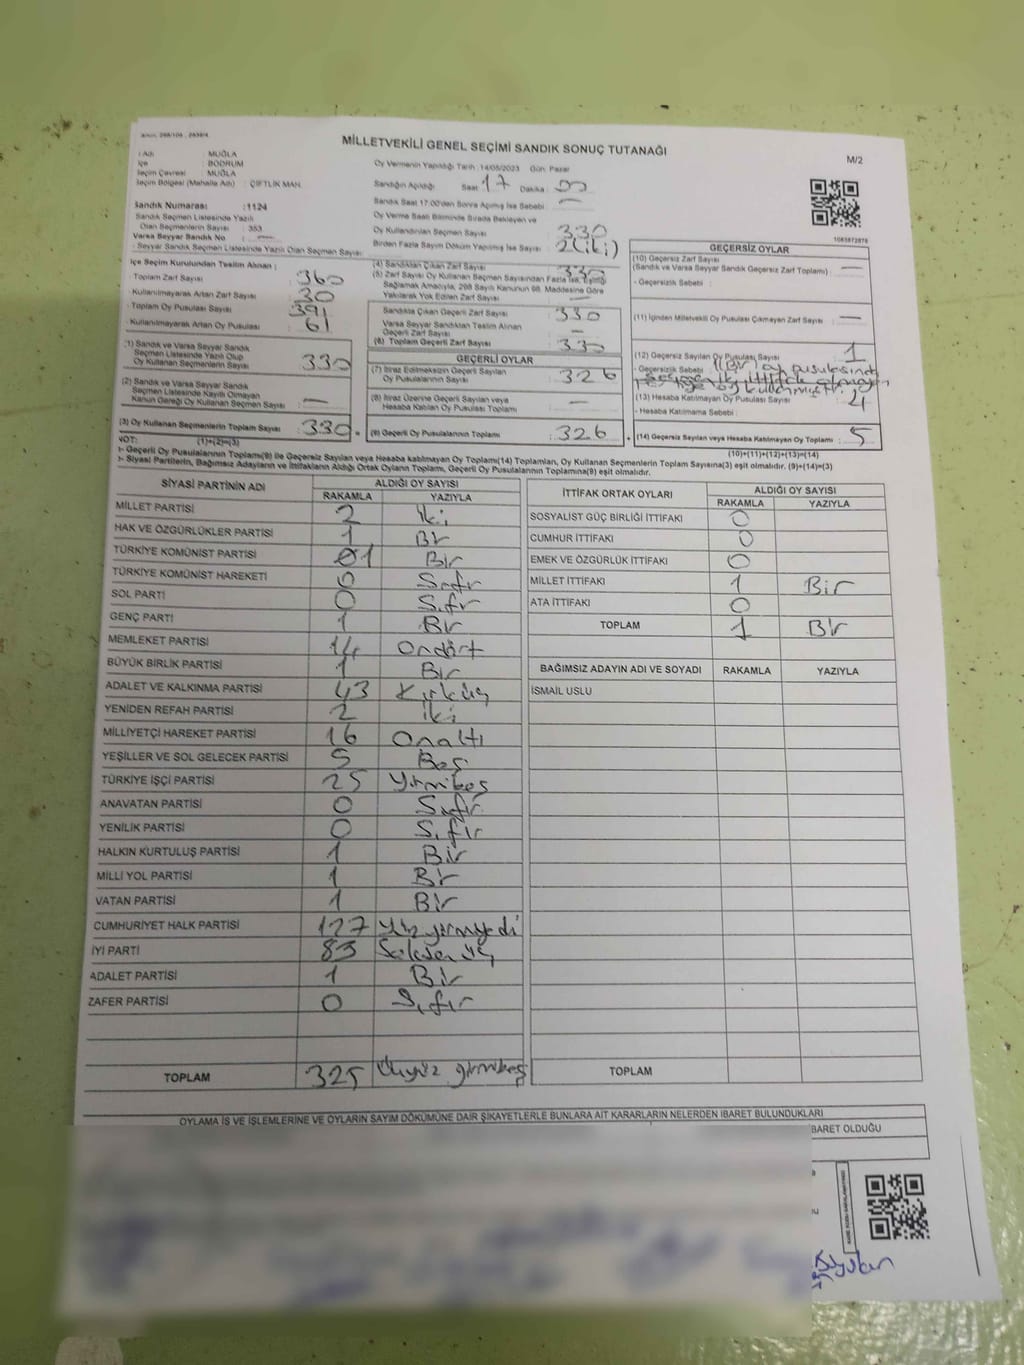 MİLLETVEKİLİ GENEL SEÇİMİ SANDIK SONUÇ TUTANAĞI
M/2
İl Adı : MUĞLA
İlçe : BODRUM
Seçim Çevresi : MUĞLA
Seçim Bölgesi (Mahalle Adı) : ÇİFTLİK MAH.
Sandık Numarası :1124
Sandık Seçmen Listesinde Yazılı
Olan Seçmenlerin Sayısı : 353
Varsa Seyyar Sandık No : —
Seyyar Sandık Seçmen Listesinde Yazılı Olan Seçmen Sayısı:
Oy Vermenin Yapıldığı Tarih :14/05/2023 Gün: Pazar
Sandığın Açıldığı Saat : 17 Dakika : 00
Sandık Saat 17:00'den Sonra Açılmış İse Sebebi : —
Oy Verme Saati Bitiminde Sırada Bekleyen ve
Oy Kullandırılan Seçmen Sayısı : 330
Birden Fazla Sayım Döküm Yapılmış İse Sayısı : 2 (iki)
İlçe Seçim Kurulundan Teslim Alınan :
Toplam Zarf Sayısı : 360
Kullanılmayarak Artan Zarf Sayısı : 30
Toplam Oy Pusulası Sayısı : 391
Kullanılmayarak Artan Oy Pusulası : 61
(1) Sandık ve Varsa Seyyar Sandık
Seçmen Listesinde Yazılı Olup
Oy Kullanan Seçmenlerin Sayısı : 330
(2) Sandık ve Varsa Seyyar Sandık
Seçmen Listesinde Kayıtlı Olmayan
Kanun Gereği Oy Kullanan Seçmen Sayısı : —
(3) Oy Kullanan Seçmenlerin Toplam Sayısı : 330
(4) Sandıktan Çıkan Zarf Sayısı : 330
(5) Zarf Sayısı Oy Kullanan Seçmen Sayısından Fazla İse, Eşitliği
Sağlamak Amacıyla, 298 Sayılı Kanunun 98. Maddesine Göre
Yakılarak Yok Edilen Zarf Sayısı : —
Sandıkta Çıkan Geçerli Zarf Sayısı : 330
Varsa Seyyar Sandıktan Teslim Alınan
Geçerli Zarf Sayısı : —
(6) Toplam Geçerli Zarf Sayısı : 330
GEÇERLİ OYLAR
(7) İtiraz Edilmeksizin Geçerli Sayılan
Oy Pusulalarının Sayısı : 326
(8) İtiraz Üzerine Geçerli Sayılan veya
Hesaba Katılan Oy Pusulası Toplamı : —
(9) Geçerli Oy Pusulalarının Toplamı : 326
1083872876
GEÇERSİZ OYLAR
(10) Geçersiz Zarf Sayısı
(Sandık ve Varsa Seyyar Sandık Geçersiz Zarf Toplamı) : —
- Geçersizlik Sebebi :
(11) İçinden Milletvekili Oy Pusulası Çıkmayan Zarf Sayısı : —
(12) Geçersiz Sayılan Oy Pusulası Sayısı : 1
- Geçersizlik Sebebi : 1(Bir) oy pusulasında
(13) Hesaba Katılmayan Oy Pusulası Sayısı : 4
- Hesaba Katılmama Sebebi :
(14) Geçersiz Sayılan veya Hesaba Katılmayan Oy Toplamı : 5
NOT: (1)+(2)=(3)
(10)+(11)+(12)+(13)=(14)
- Geçerli Oy Pusulalarının Toplamı(9) ile Geçersiz Sayılan veya Hesaba Katılmayan Oy Toplamı(14) Toplamları, Oy Kullanan Seçmenlerin Toplam Sayısına(3) eşit olmalıdır. (9)+(14)=(3)
- Siyasi Partilerin, Bağımsız Adayların ve İttifakların Aldığı Ortak Oyların Toplamı, Geçerli Oy Pusulalarının Toplamına(9) eşit olmalıdır.
SİYASİ PARTİNİN ADI ALDIĞI OY SAYISI
RAKAMLA YAZIYLA
MİLLET PARTİSİ 2 iki
HAK VE ÖZGÜRLÜKLER PARTİSİ 1 Bir
TÜRKİYE KOMÜNİST PARTİSİ 01 Bir
TÜRKİYE KOMÜNİST HAREKETİ 0 Sıfır
SOL PARTİ 0 Sıfır
GENÇ PARTİ 1 Bir
MEMLEKET PARTİSİ 14 Ondört
BÜYÜK BİRLİK PARTİSİ 1 Bir
ADALET VE KALKINMA PARTİSİ 43 Kırküç
YENİDEN REFAH PARTİSİ 2 iki
MİLLİYETÇİ HAREKET PARTİSİ 16 Onaltı
YEŞİLLER VE SOL GELECEK PARTİSİ 5 Beş
TÜRKİYE İŞÇİ PARTİSİ 25 Yirmibeş
ANAVATAN PARTİSİ 0 Sıfır
YENİLİK PARTİSİ 0 Sıfır
HALKIN KURTULUŞ PARTİSİ 1 Bir
MİLLİ YOL PARTİSİ 1 Bir
VATAN PARTİSİ 1 Bir
CUMHURİYET HALK PARTİSİ 127 Yüz yirmiyedi
İYİ PARTİ 83 Seksen üç
ADALET PARTİSİ 1 Bir
ZAFER PARTİSİ 0 Sıfır
TOPLAM 325 Üçyüz yirmibeş
İTTİFAK ORTAK OYLARI ALDIĞI OY SAYISI
RAKAMLA YAZIYLA
SOSYALİST GÜÇ BİRLİĞİ İTTİFAKI 0
CUMHUR İTTİFAKI 0
EMEK VE ÖZGÜRLÜK İTTİFAKI 0
MİLLET İTTİFAKI 1 Bir
ATA İTTİFAKI 0
TOPLAM 1 Bir
BAĞIMSIZ ADAYIN ADI VE SOYADI RAKAMLA YAZIYLA
İSMAİL USLU
TOPLAM
OYLAMA İŞ VE İŞLEMLERİNE VE OYLARIN SAYIM DÖKÜMÜNE DAİR ŞİKAYETLERLE BUNLARA AİT KARARLARIN NELERDEN İBARET BULUNDUKLARI
BARET OLDUĞU